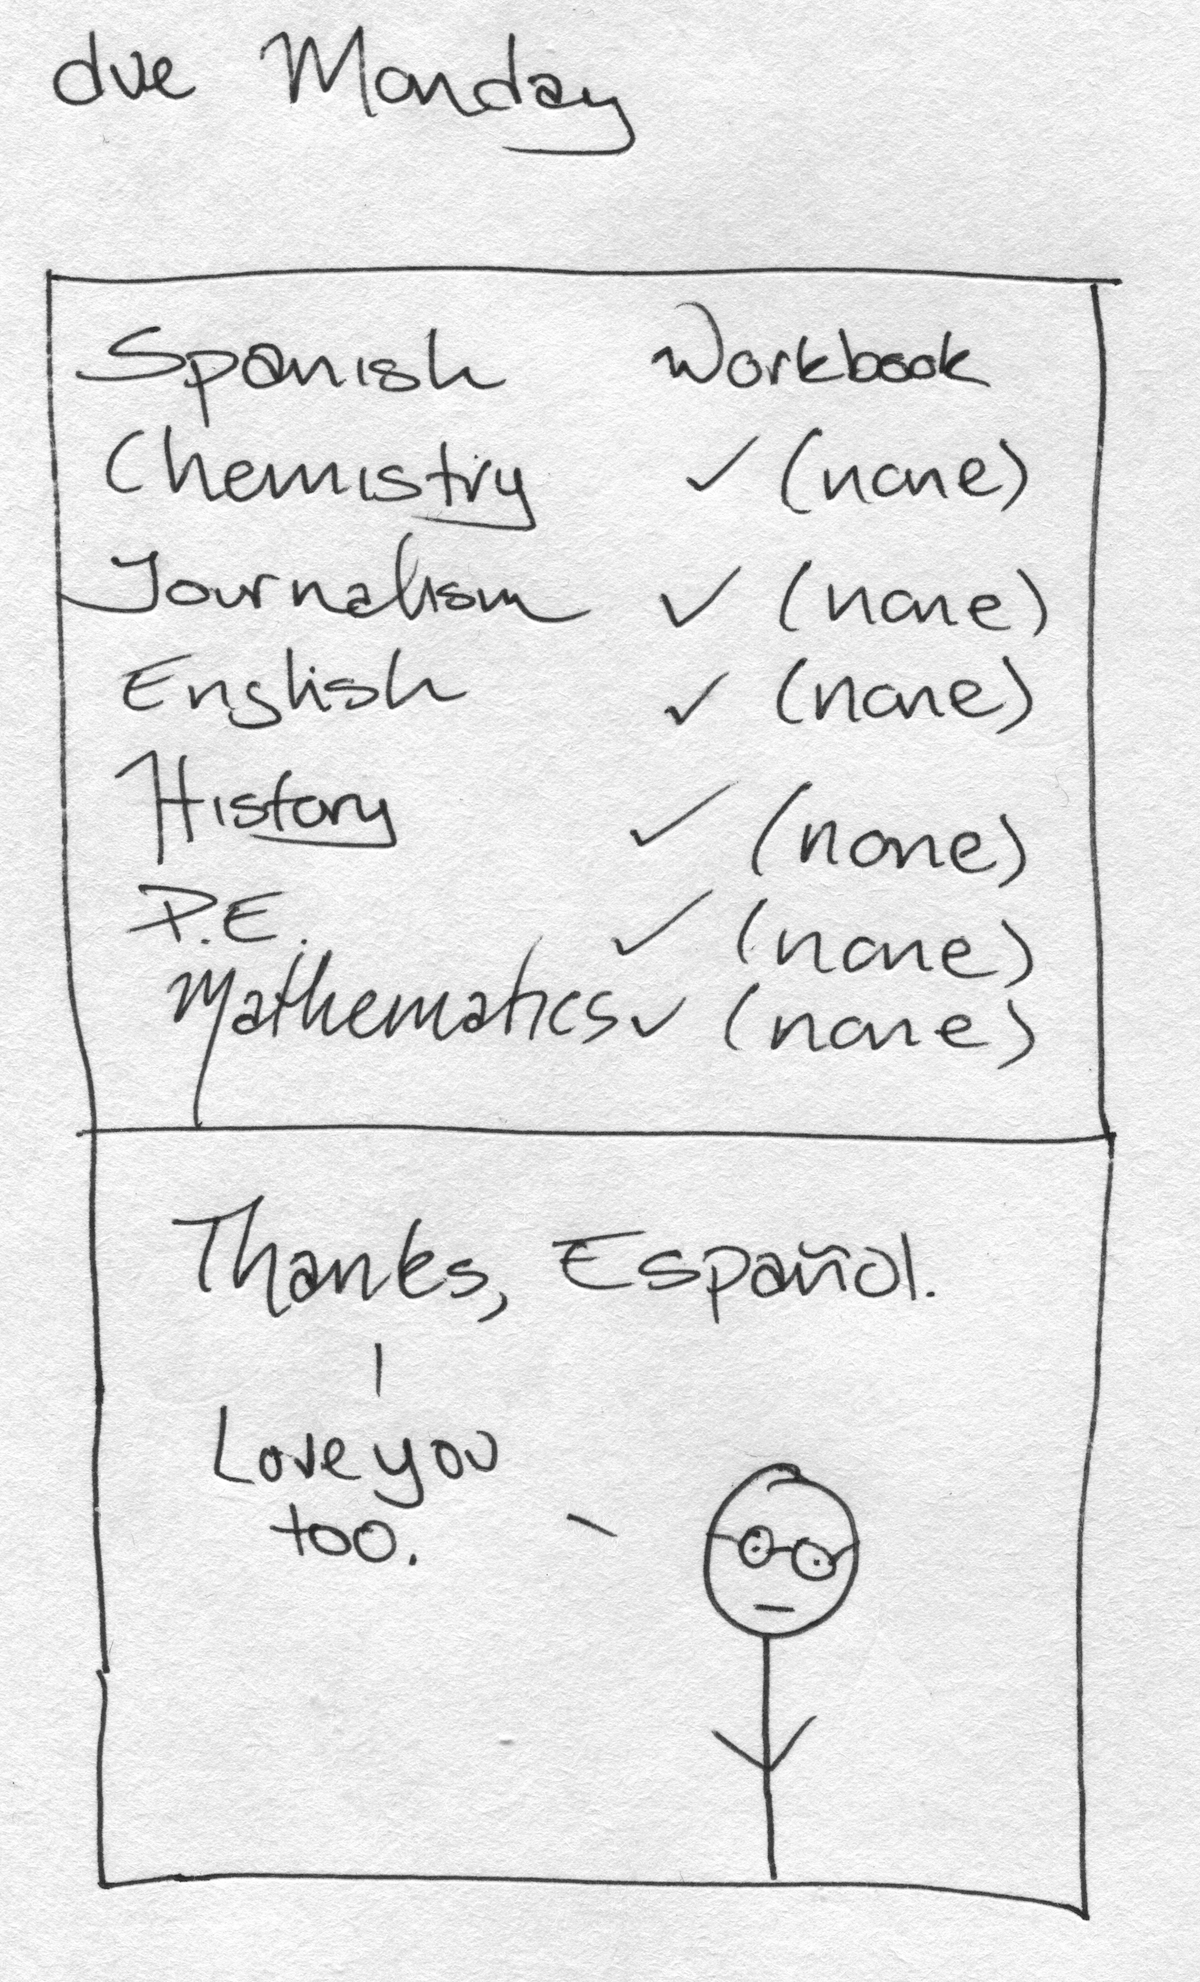 due Monday
Spanish Workbook
Chemistry ✓ (none)
Journalism ✓ (none)
English ✓ (none)
History ✓ (none)
P.E. ✓ (none)
Mathematics ✓ (none)
Thanks, Español.
Love you
too.